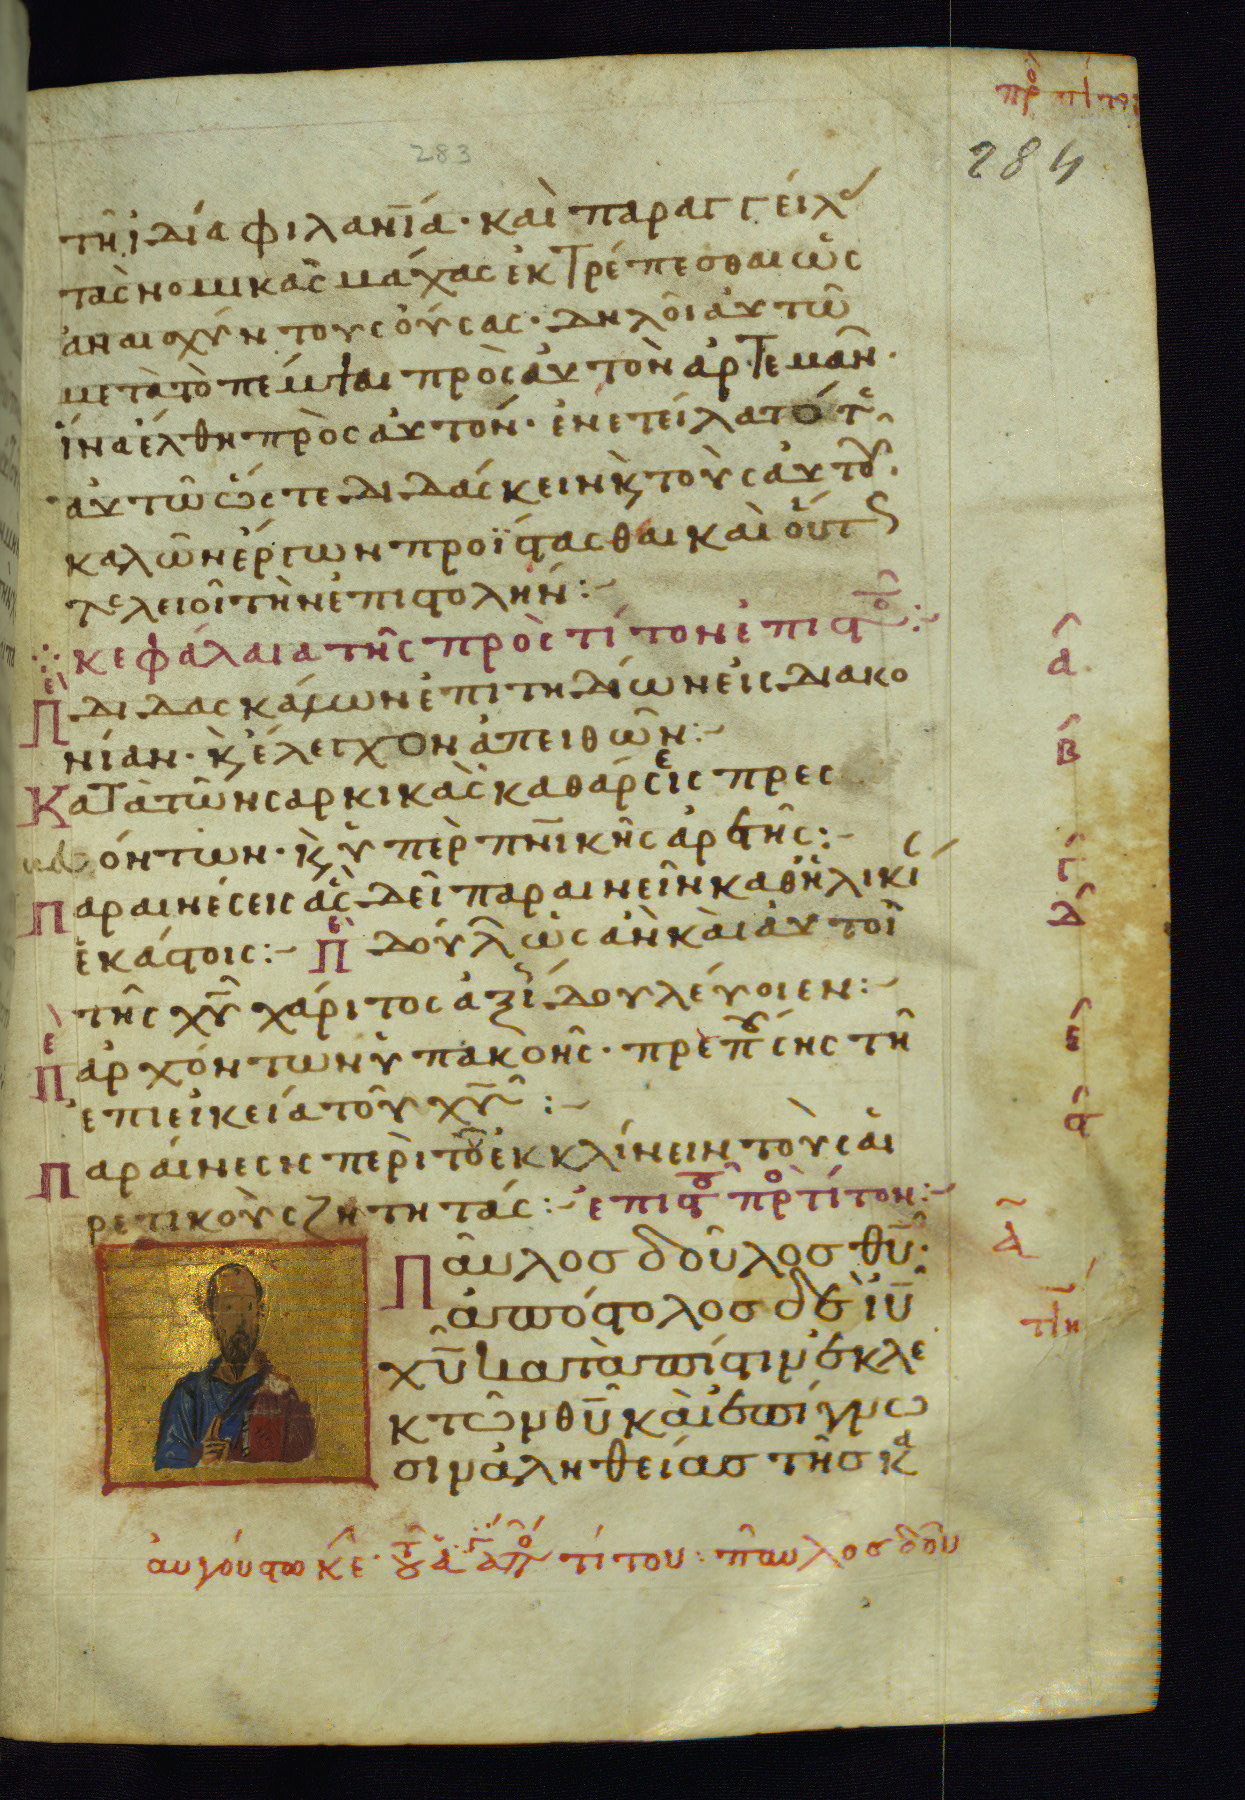 προ τίτον
283
284
τῆ ἰδία φιλαν̅ία· καὶ παραγγείλ
τὰς νομικὰς μάχας ἐκτρέπεσθαι ὡς
ἀναισχύντους οὔσας· δηλοῖ αὐτῶ
μετὰ τὸ πέμψαι πρὸς αὐτὸν ἀρτεμᾶν·
ἵνα ἔλθη πρὸς αὐτόν· ἐνετείλατο τε
αὐτῶ ὥστε διδάσκειν κ τοὺς αὐτοῦ·
καλῶν ἔργων προΐστασθαι καὶ οὕτς
τελειοῖ τὴν ἐπιστολήν:~
κεφάλαια τῆς πρὸς τίτον ἐπιστο:~
α
Πε διδασκάλων ἐπιτηδίων εἰς διακο
νίαν· κ ἔλεγχον ἀπειθῶν:~
β
Κατὰ τῶν σαρκικὰς καθάρσεις πρεσ
όντων· κ ὑπὲρ πν̅ικῆς ἀρετῆς:~
γ
Παραινέσεις ἃς δεῖ παραινεῖν καθ ἡλικί
δ
ἑκάστοις:~ Πε δούλ ὡς ἂν καὶ αὐτοὶ
τῆς χυ̅ χάριτος ἀξί δουλεύοιεν:~
ε
Πε ἀρχόντων ὑπακοῆς· πρεπούσης τῆ
ἐπιεικεία τοῦ χυ̅:~
ϛ
Παραίνεσις περὶ τοῦ ἐκκλίνειν τοὺς αἱ
ρετικοὺς ζητητάς:~ ἐπιστο προ τίτον:~
α
Παῦλος δοῦλος θυ̅·
ἀπόστολος δὲ ιυ̅
χυ̅ κατὰ πίστιν ἐκλε
κτῶν θυ̅ καὶ ἐπίγνω
σιν ἀληθείας τῆς κα
αυγούστω κε· τίτου: παῦλος δοῦ